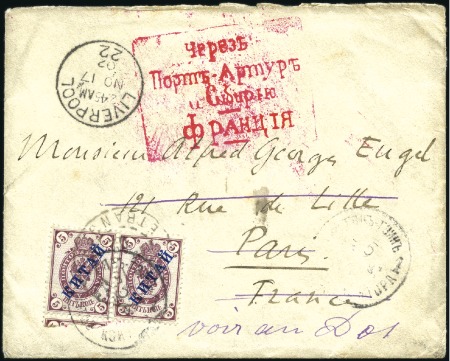 Черезъ
Портъ-Артуръ
и Сибирію
Франція
LIVERPOOL
2.45 AM
NO 17
02
22
Monsieur Alfred Georges Engel
121 Rue de Lille
Paris
France
voir au Dos
5 5
КИТАЙ КИТАЙ
5 5